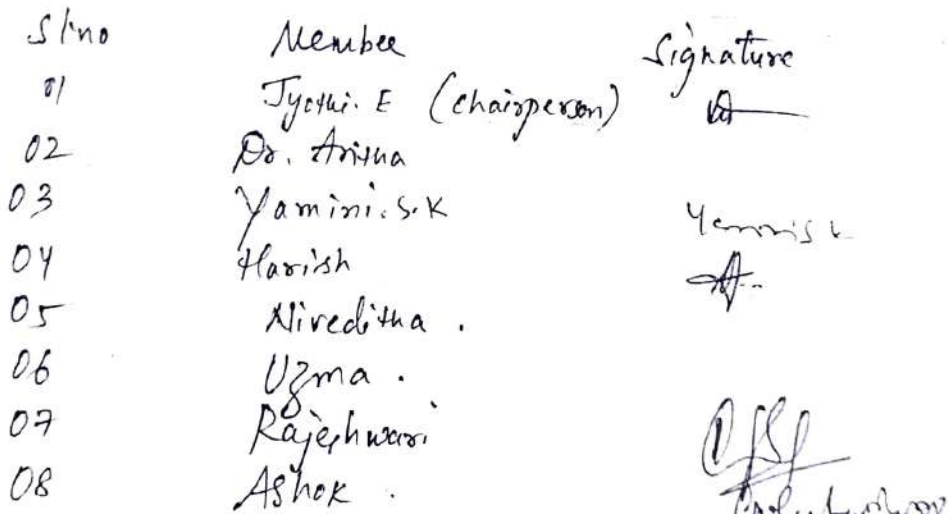 Sl.no Member Signature
01 Jyothi. E (chairperson)
02 Dr. Anitha
03 Yamini. S.K Yamini S K
04 Harish
05 Niveditha .
06 Uzma .
07 Rajeshwari
08 Ashok .